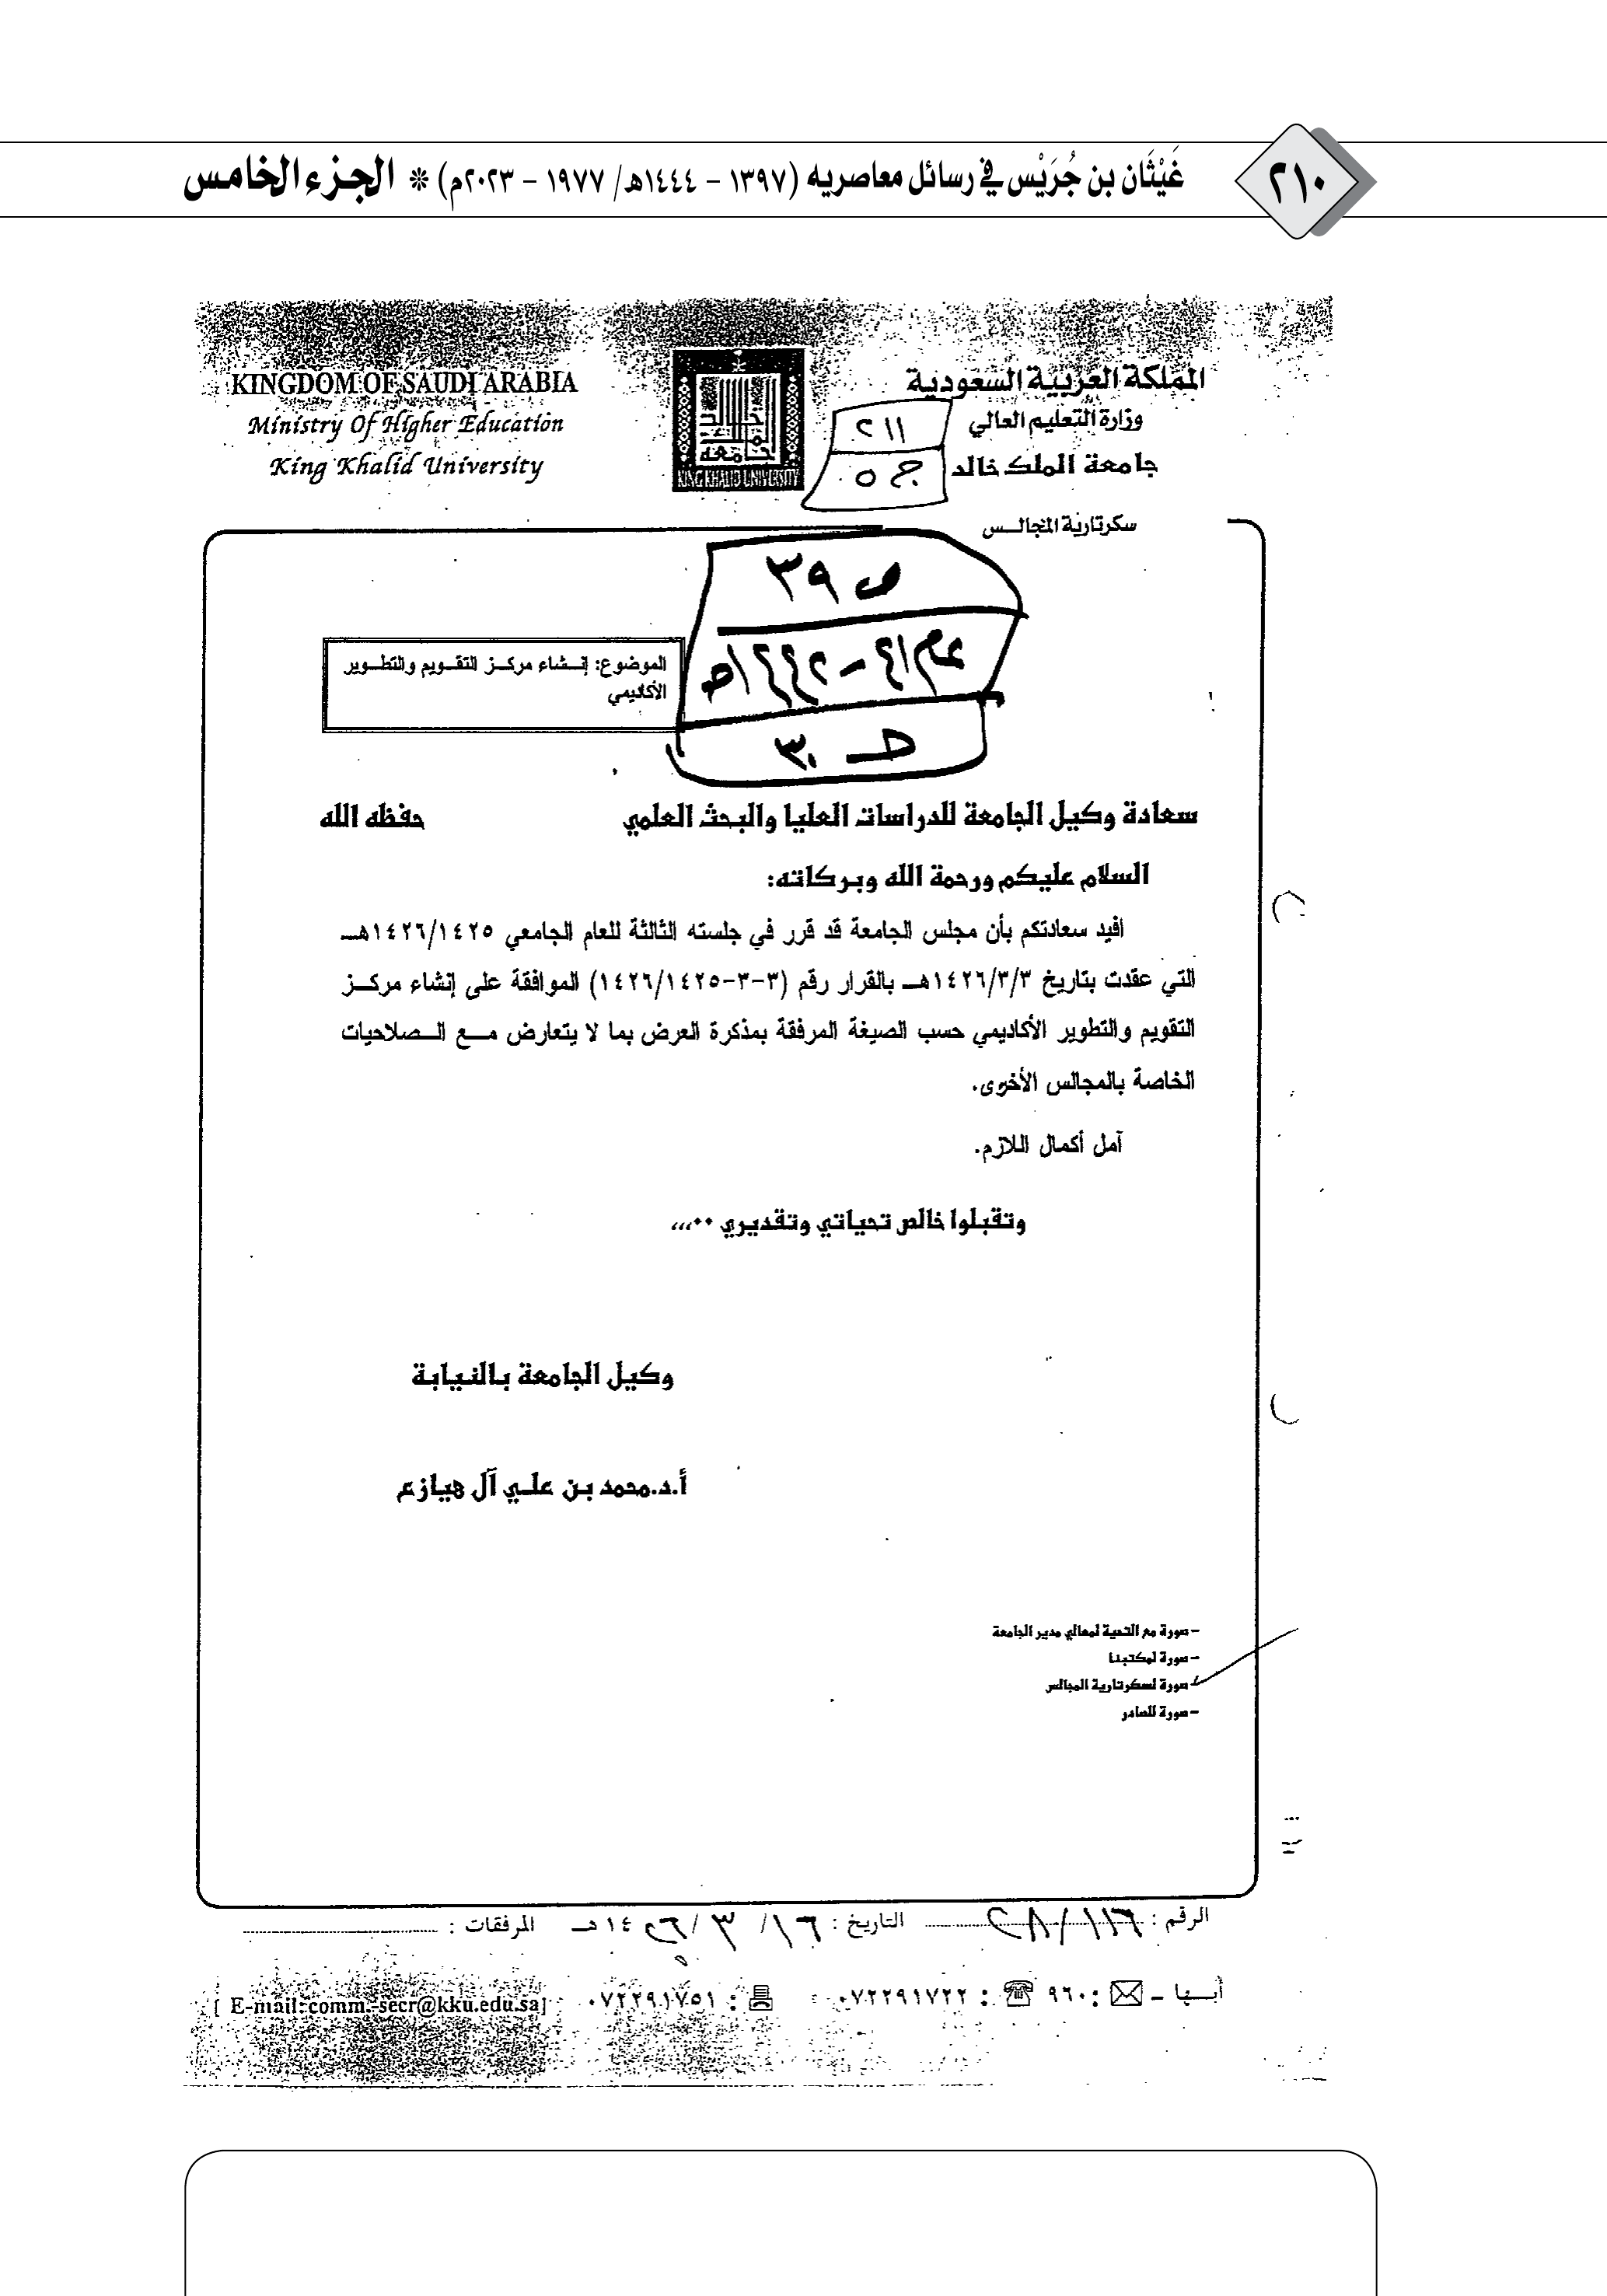 ٢١٠
غَيْثَان بن جُرَيْس في رسائل معاصريه (١٣٩٧ - ١٤٤٤هـ/ ١٩٧٧ - ٢٠٢٣م) * الجزء الخامس
KINGDOM OF SAUDI ARABIA
Ministry Of Higher Education
King Khalid University
KING KHALID UNIVERSITY
المملكة العربية السعودية
وزارة التعليم العالي
جامعة الملك خالد
سكرتارية المجالس
٢١١
ج ٥
ص ٣٩
الموضوع: إنشاء مركز التقويم والتطوير
الأكاديمي
سعادة وكيل الجامعة للدراسات العليا والبحث العلمي حفظه الله
السلام عليكم ورحمة الله وبركاته:
افيد سعادتكم بأن مجلس الجامعة قد قرر في جلسته الثالثة للعام الجامعي ١٤٢٦/١٤٢٥هـ
التي عقدت بتاريخ ١٤٢٦/٣/٣هـ بالقرار رقم (٣-٣-١٤٢٦/١٤٢٥) الموافقة على إنشاء مركز
التقويم والتطوير الأكاديمي حسب الصيغة المرفقة بمذكرة العرض بما لا يتعارض مع الصلاحيات
الخاصة بالمجالس الأخرى.
آمل أكمال اللازم.
وتقبلوا خالص تحياتي وتقديري ،،،٠٠
وكيل الجامعة بالنيابة
أ.د.محمد بن علي آل هيازع
- صورة مع التحية لمعالي مدير الجامعة
- صورة لمكتبنا
- صورة لسكرتارية المجالس
- صورة للصادر
الرقم : التاريخ : ١٦/ ٣ /١٤٢٦هـ المرفقات :
أبها - : ٩٦٠ : ٠٧٢٢٩١٧٢٢ : ٠٧٢٢٩١٧٥١ [ E-mail:comm.-secr@kku.edu.sa]